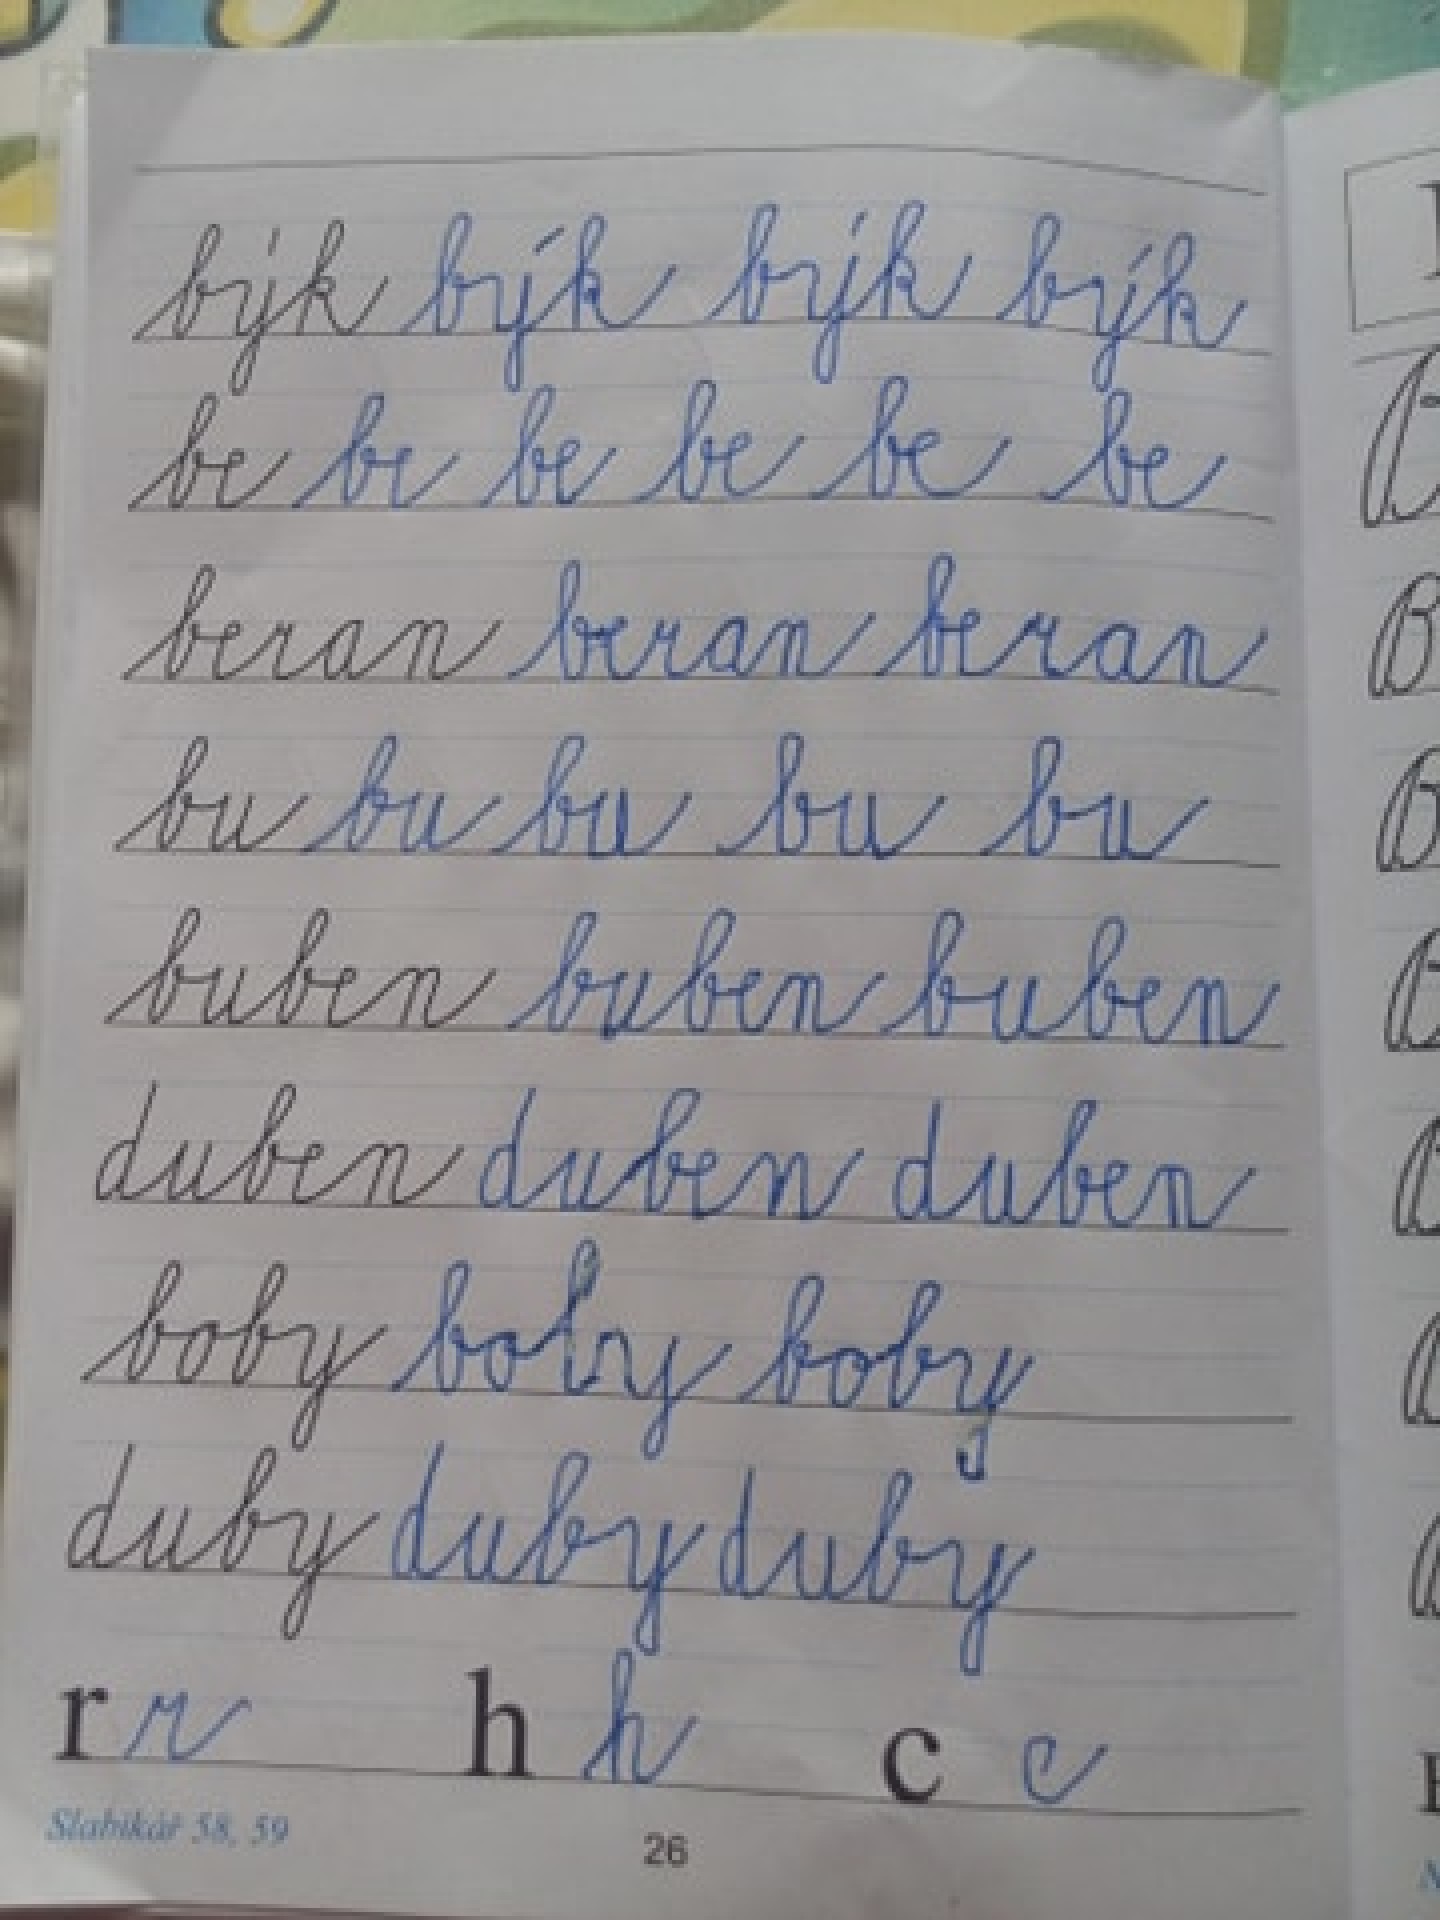 býk býk býk býk
be be be be be be
beran beran beran
bu bu bu bu bu
buben buben buben
duben duben duben
boby boby boby
duby duby duby
r r h h c c
Slabikář 58, 59
26
B
B
B
B